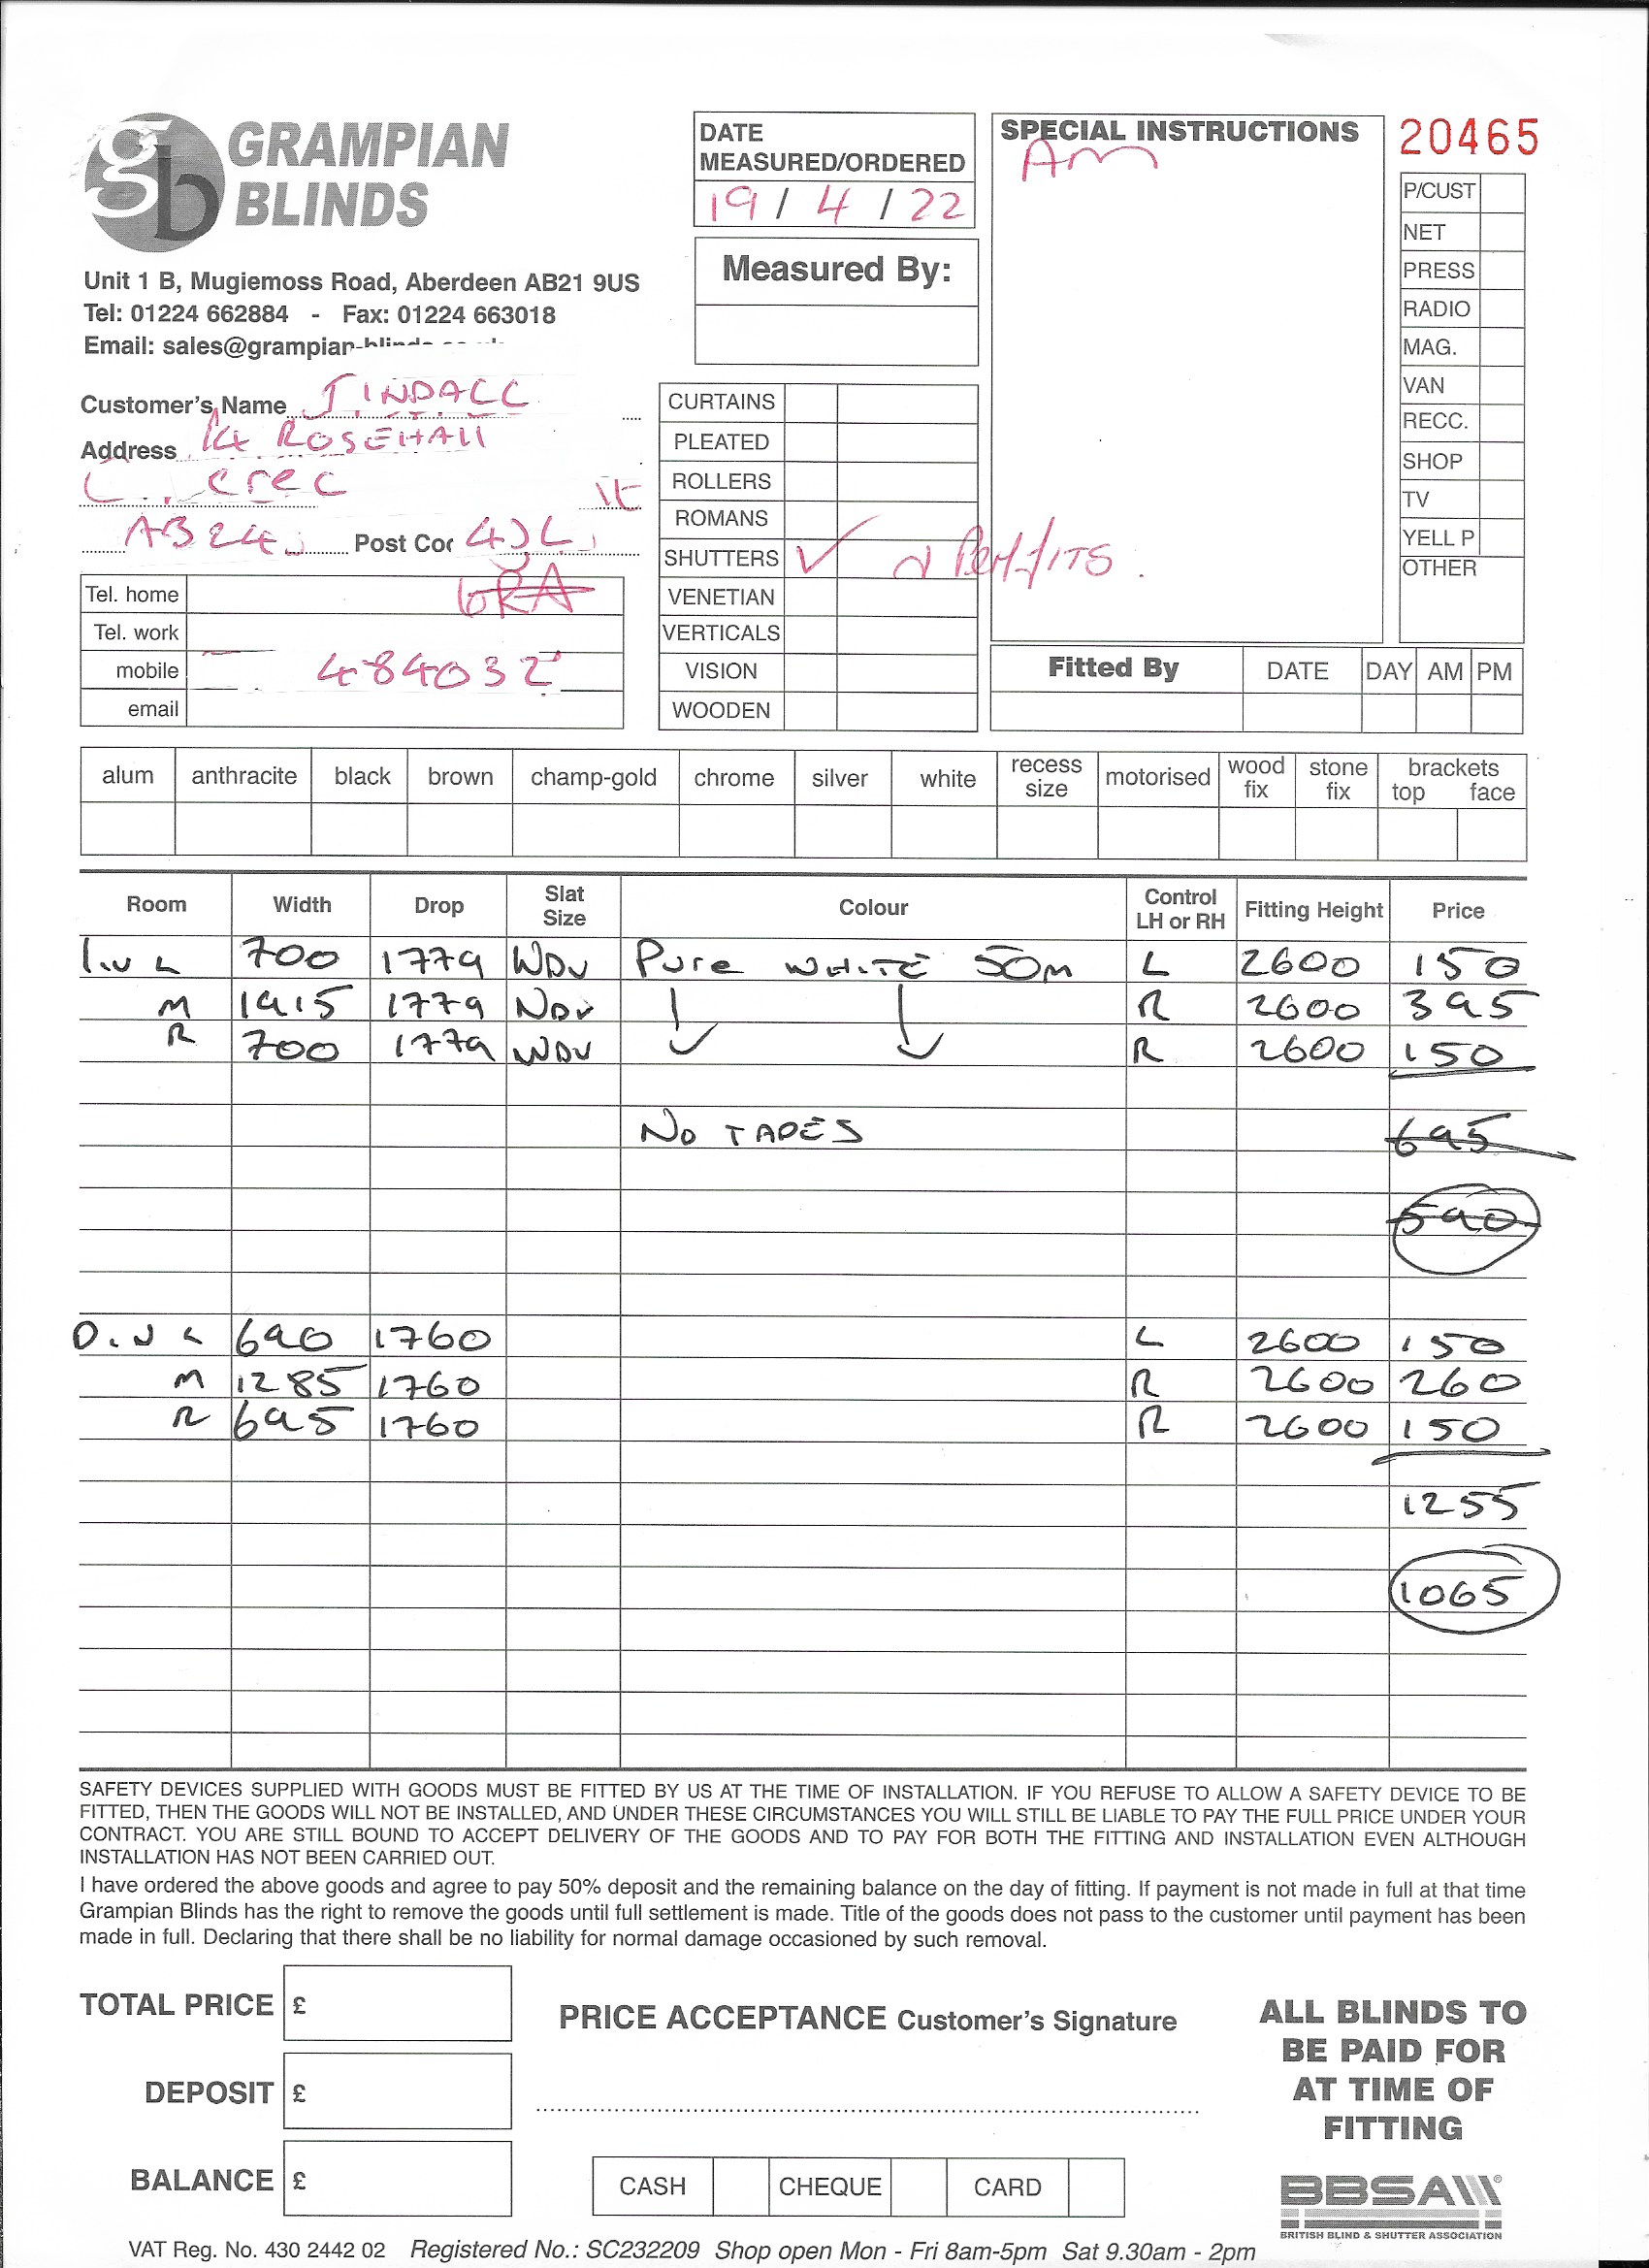 GRAMPIAN
BLINDS
Unit 1 B, Mugiemoss Road, Aberdeen AB21 9US
Tel: 01224 662884 - Fax: 01224 663018
Email: sales@grampian-blinds
DATE
MEASURED/ORDERED
19 / 4 / 22
Measured By:
SPECIAL INSTRUCTIONS
Am
20465
P/CUST
NET
PRESS
RADIO
MAG.
VAN
RECC.
SHOP
TV
YELL P
OTHER
Customer's Name TINDALL
Address 14 ROSEHALL
AB24 Post Co
Tel. home
Tel. work
mobile 484032
email
CURTAINS
PLEATED
ROLLERS
ROMANS
SHUTTERS ✓
VENETIAN
VERTICALS
VISION
WOODEN
Fitted By DATE DAY AM PM
alum anthracite black brown champ-gold chrome silver white recess size motorised wood fix stone fix brackets top face
Room Width Drop Slat Size Colour Control LH or RH Fitting Height Price
L 700 1779 WDV Pure WHITE 50m L 2600 150
M 1915 1779 WDV R 2600 395
R 700 1779 WDV R 2600 150
NO TAPES 695
590
L 690 1760 L 2600 150
M 1285 1760 R 2600 260
R 695 1760 R 2600 150
1255
1065
SAFETY DEVICES SUPPLIED WITH GOODS MUST BE FITTED BY US AT THE TIME OF INSTALLATION. IF YOU REFUSE TO ALLOW A SAFETY DEVICE TO BE
FITTED, THEN THE GOODS WILL NOT BE INSTALLED, AND UNDER THESE CIRCUMSTANCES YOU WILL STILL BE LIABLE TO PAY THE FULL PRICE UNDER YOUR
CONTRACT. YOU ARE STILL BOUND TO ACCEPT DELIVERY OF THE GOODS AND TO PAY FOR BOTH THE FITTING AND INSTALLATION EVEN ALTHOUGH
INSTALLATION HAS NOT BEEN CARRIED OUT.
I have ordered the above goods and agree to pay 50% deposit and the remaining balance on the day of fitting. If payment is not made in full at that time
Grampian Blinds has the right to remove the goods until full settlement is made. Title of the goods does not pass to the customer until payment has been
made in full. Declaring that there shall be no liability for normal damage occasioned by such removal.
TOTAL PRICE £
DEPOSIT £
BALANCE £
PRICE ACCEPTANCE Customer's Signature
CASH CHEQUE CARD
ALL BLINDS TO
BE PAID FOR
AT TIME OF
FITTING
BBSA
BRITISH BLIND & SHUTTER ASSOCIATION
VAT Reg. No. 430 2442 02 Registered No.: SC232209 Shop open Mon - Fri 8am-5pm Sat 9.30am - 2pm